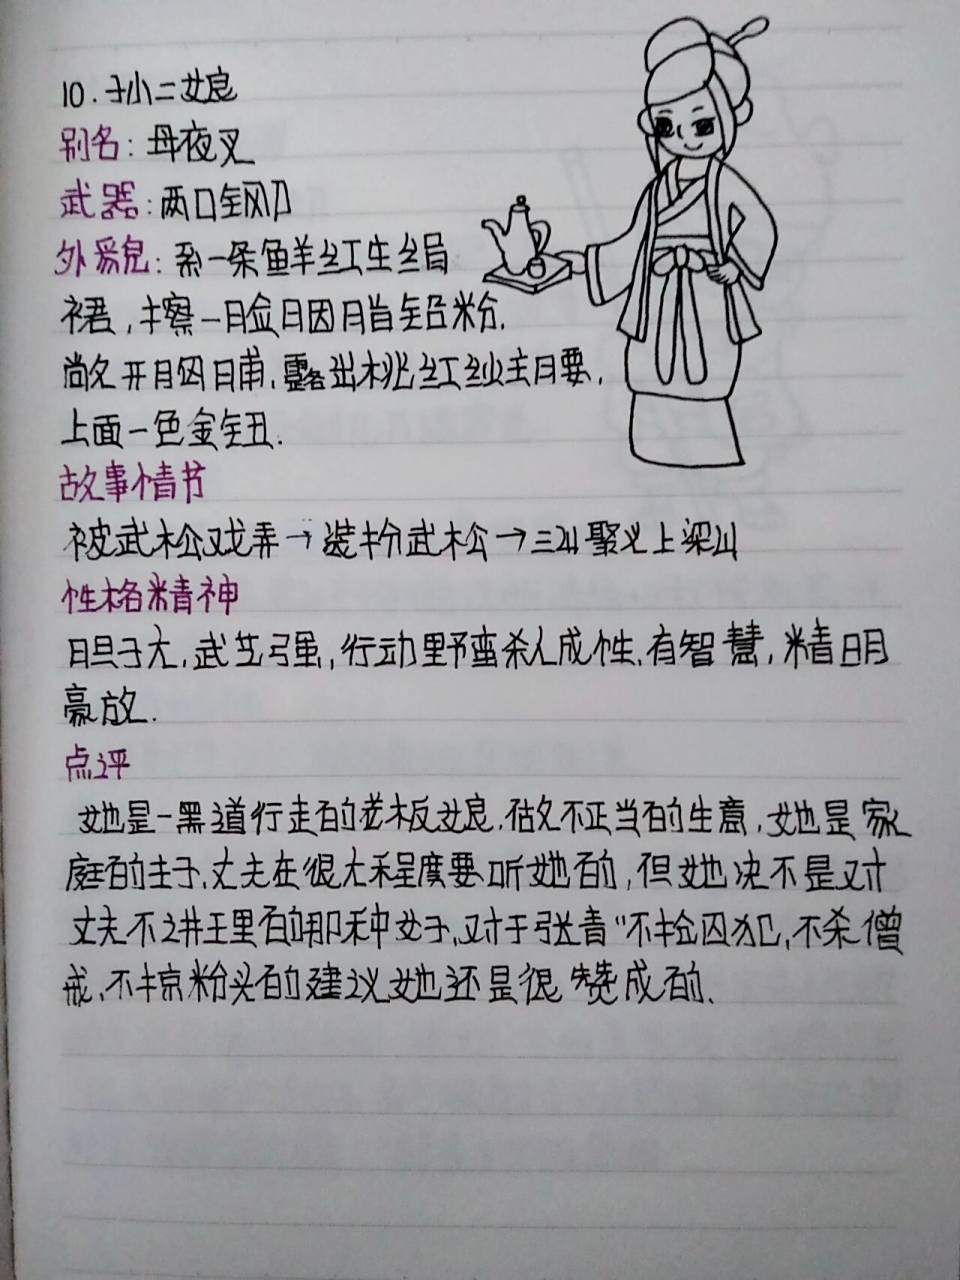 10.孙二娘
别名:母夜叉
武器:两口钢刀
外貌:系一条鱼羊红生绢
裙,擦一脸胭脂铅粉.
敞开胸脯,露出桃红纱主腰,
上面一色金钮.
故事情节
被武松戏弄→装扮武松→三山聚义上梁山
性格精神
胆子大,武艺强,行动野蛮杀人成性.有智慧,精明
豪放.
点评
她是一黑道行走的老板娘.做不正当的生意,她是家
庭的主子,丈夫在很大程度要听她的,但她决不是对
丈夫不讲理的那种女子,对于张青“不捡囚犯,不杀僧
戒,不掠粉头的建议她还是很赞成的.